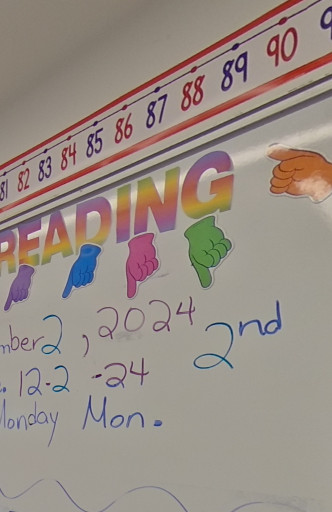 81 82 83 84 85 86 87 88 89 90 9
READING
mber 2, 2024 2nd
. 12-2-24
Monday Mon.